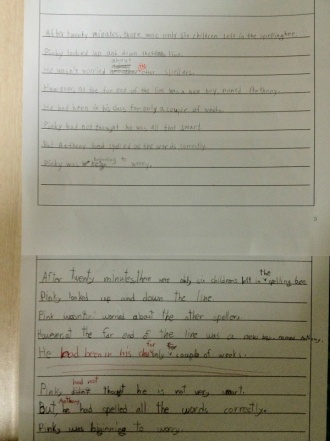 After twenty minutes, there were only six children left in the spelling bee.
Pinky looked up and down the line.
He wasn't worried about the other spellers.
However, at the far end of the line was a new boy named Anthony.
He had been in his class for only a couple of weeks.
Pinky had not thought he was all that smart.
But Anthony had spelled all the words correctly.
Pinky was beginning to worry.
After twenty minutes, there were only six childrens left in the spelling bee.
Pinky looked up and down the line.
Pink wasn't worried about the other spellers.
However at the far end of the line was a new boy named
He had been in his for only for a couple of weeks.
Pinky had not thought he is not very smart.
But Anthony he had spelled all the words correctly.
Pinky was beginning to worry.